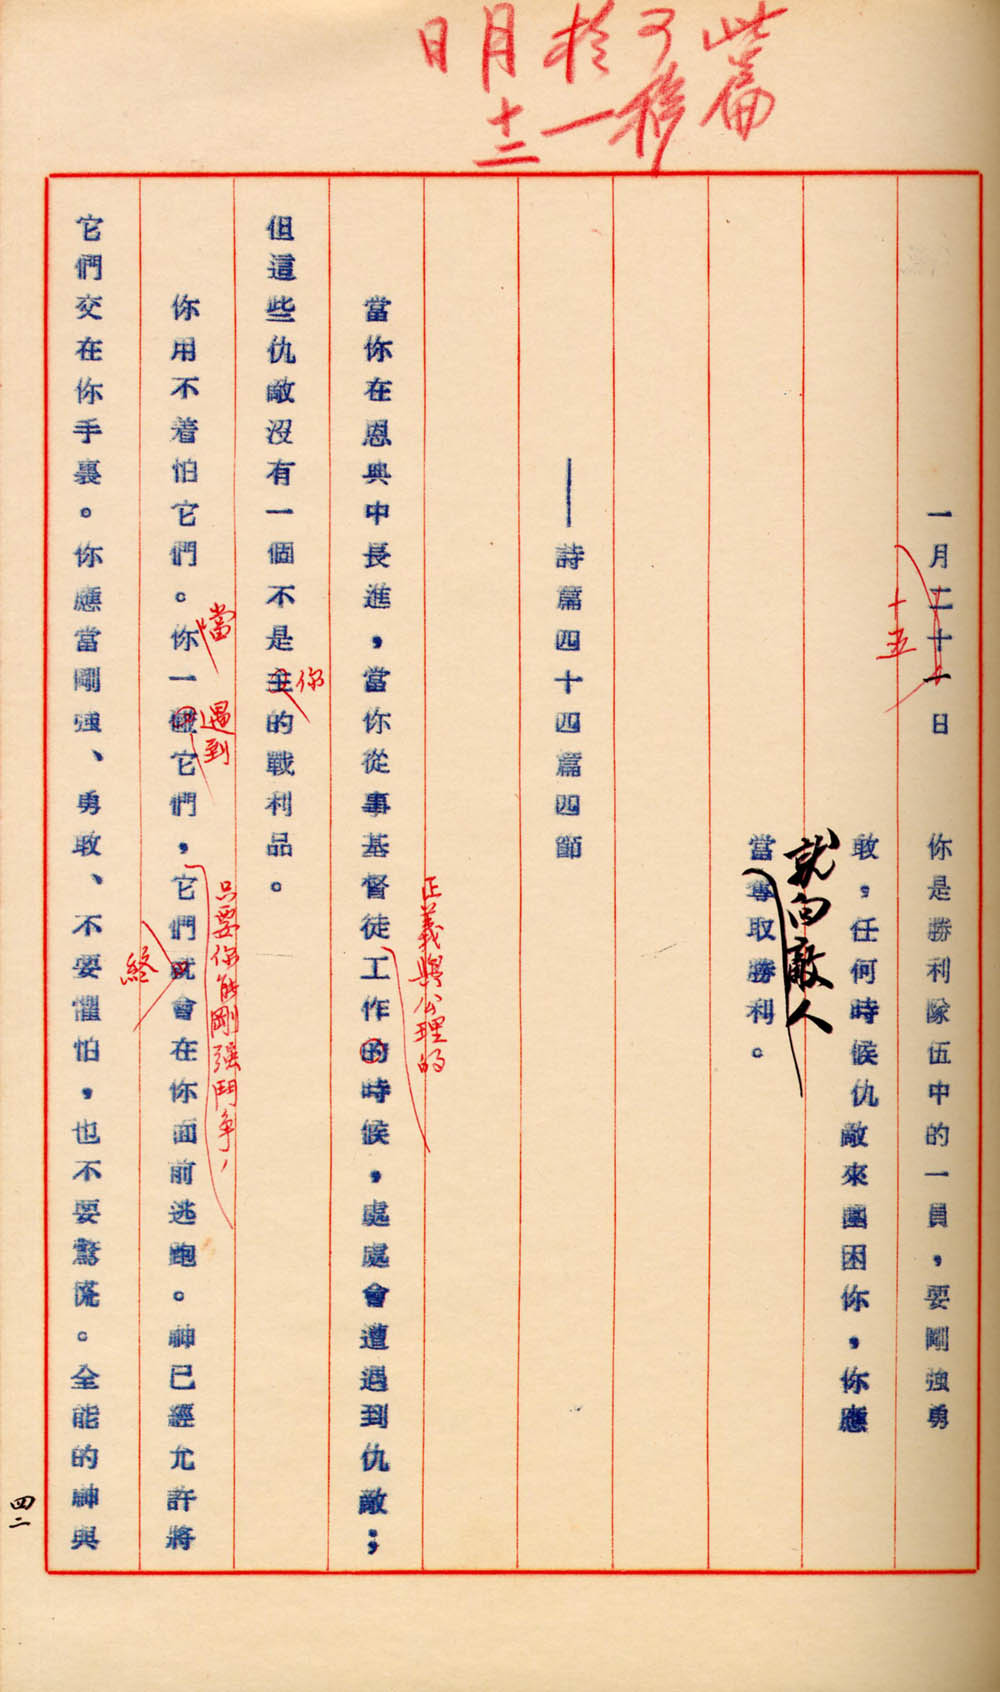 此篇
可移
於一
月十二
日明
一月二十一日　你是勝利隊伍中的一員，要剛強勇
十五
敢，任何時候仇敵來圍困你，你應
就向敵人
當奪取勝利。
——詩篇四十四篇四節
正義與公理的
當你在恩典中長進，當你從事基督徒工作的時候，處處會遭遇到仇敵；
你
但這些仇敵沒有一個不是主的戰利品。
當
遇到
只要你能剛強鬥爭，
你用不着怕它們。你一碰它們，它們就會在你面前逃跑。神已經允許將
終
它們交在你手裏。你應當剛強、勇敢、不要懼怕，也不要驚慌。全能的神與
四二